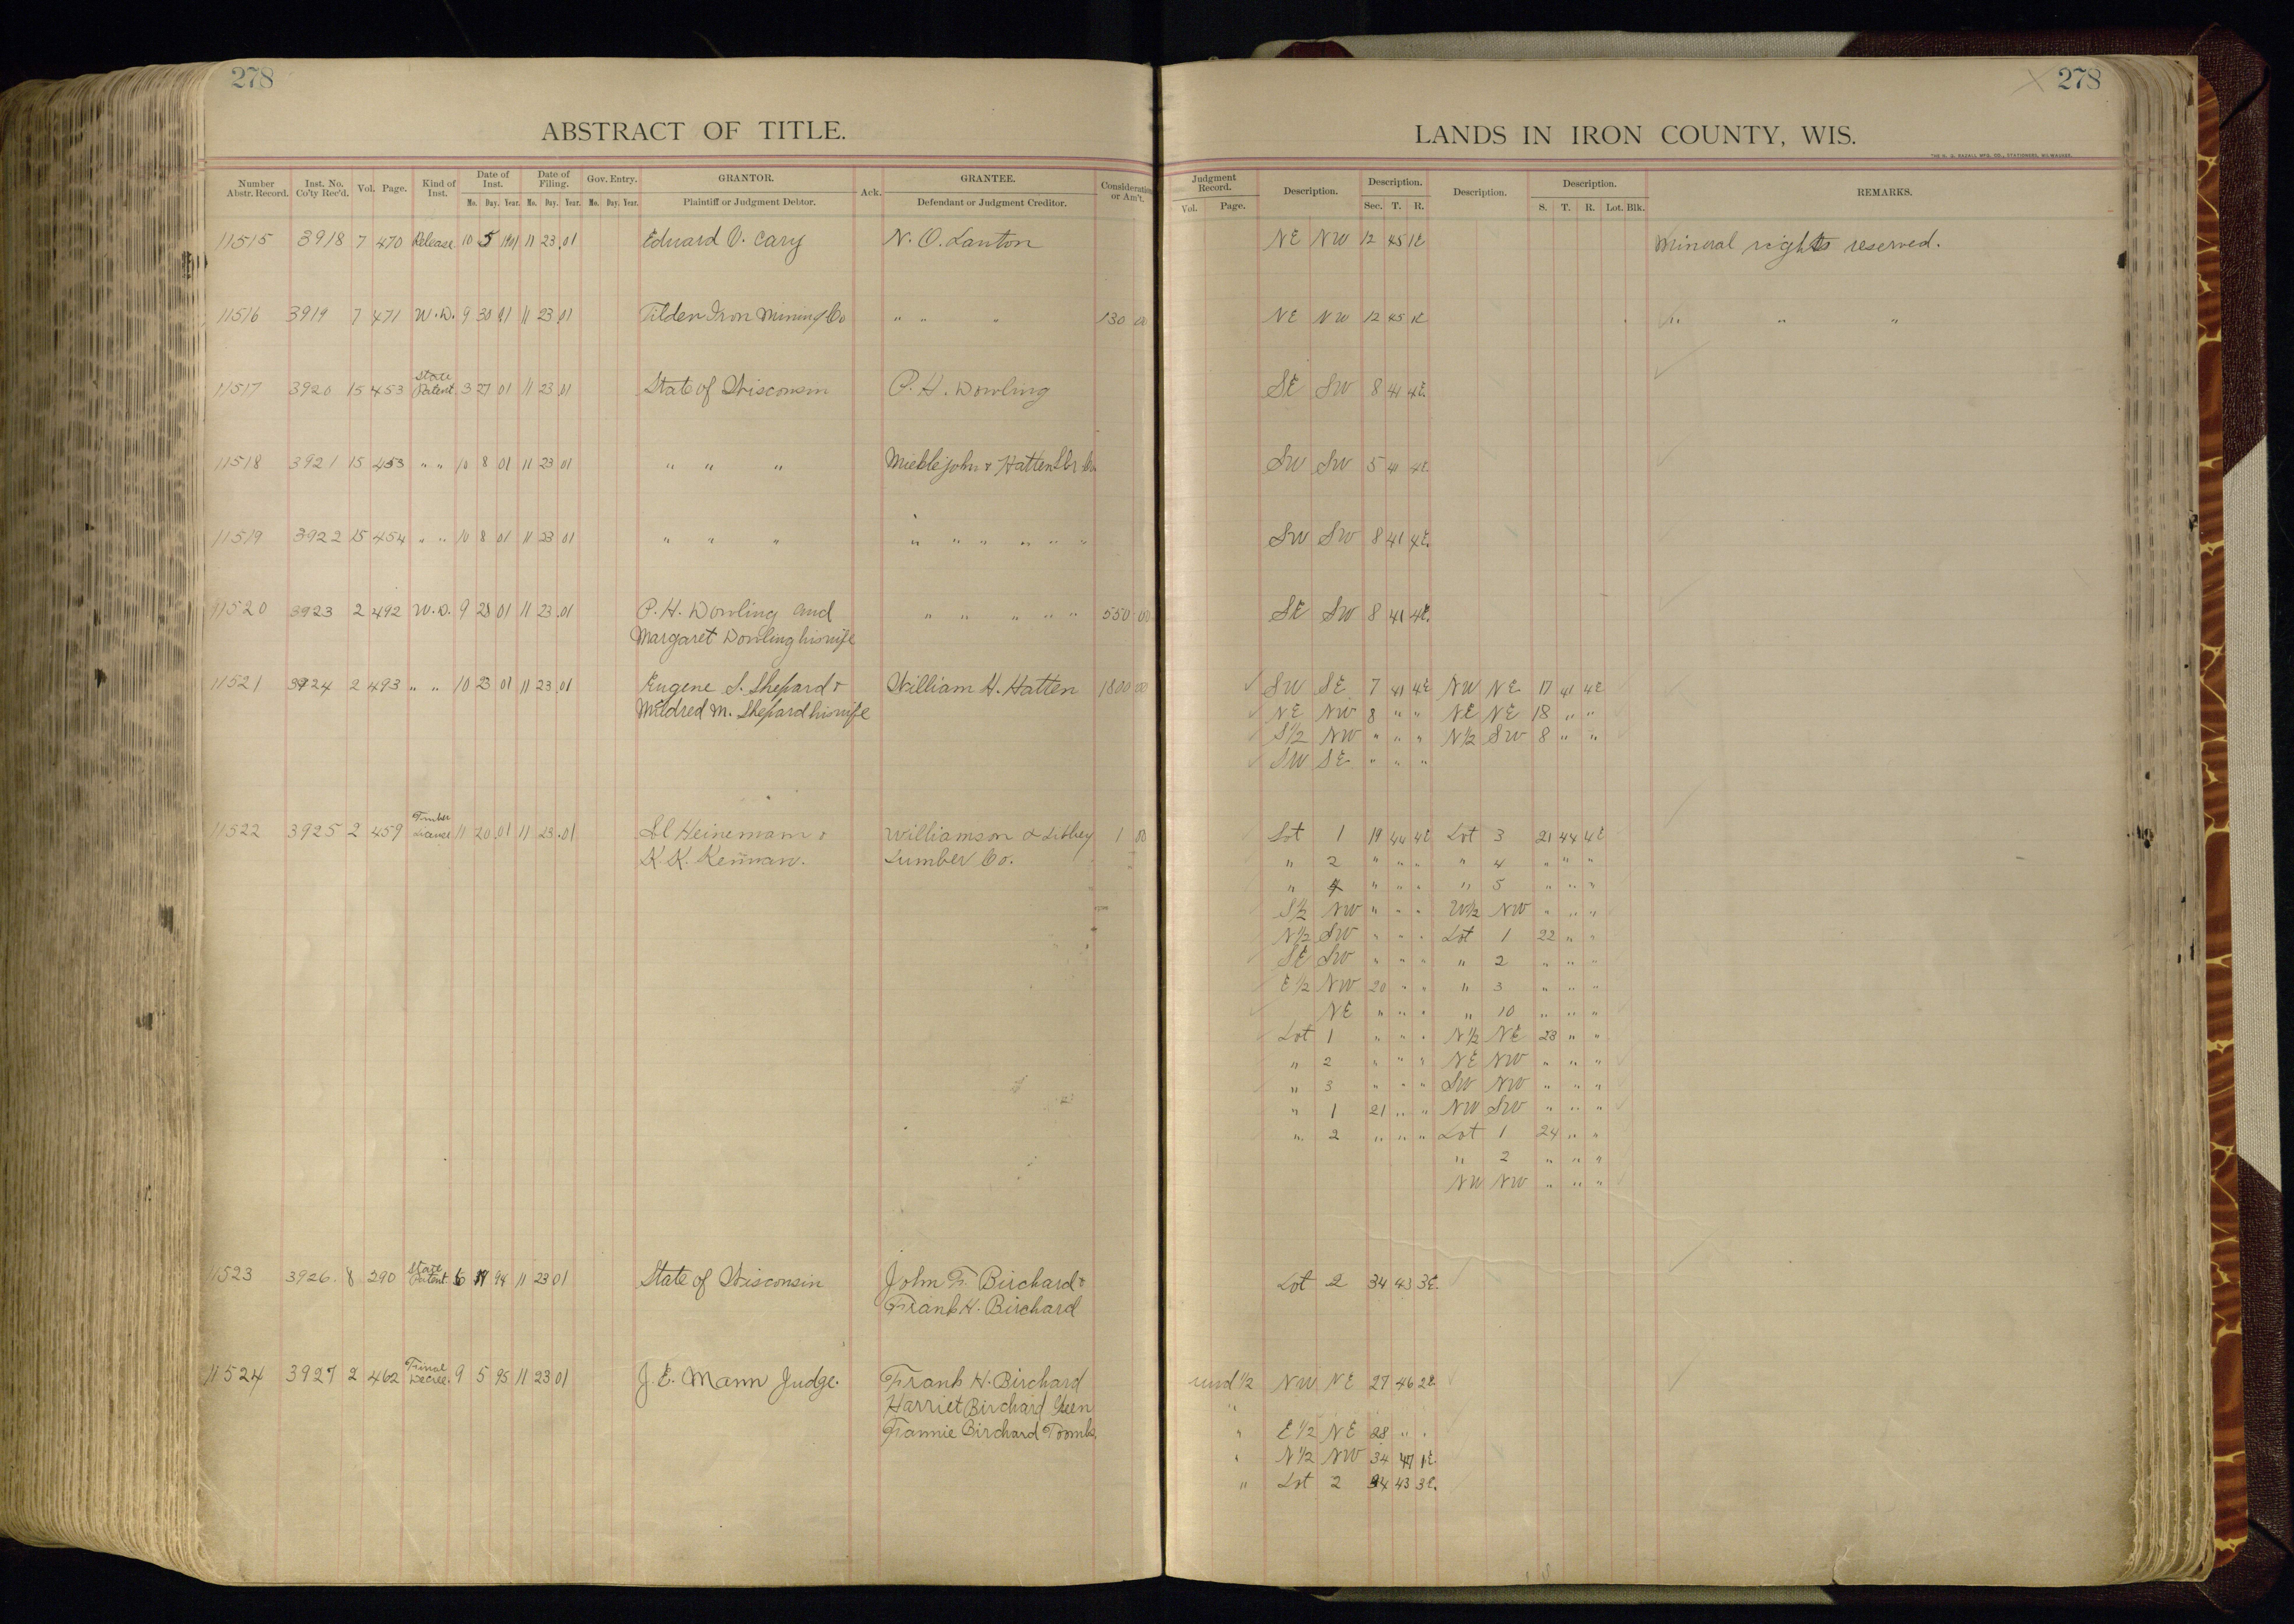 278
278
ABSTRACT OF TITLE.
LANDS IN IRON COUNTY, WIS.
Number Abstr. Record. Inst. No. Co'ty Rec'd. Vol. Page. Kind of Inst. Date of Inst. Mo. Day. Year. Date of Filing. Mo. Day. Year. Gov. Entry. Mo. Day. Year. GRANTOR. Plaintiff or Judgment Debtor. Ack. GRANTEE. Defendant or Judgment Creditor. Consideration or Am't.
Judgment Record. Vol. Page. Description. Description. Sec. T. R. Description. Description. S. T. R. Lot. Blk. REMARKS.
11515 3918 7 470 Release 10 5 1901 11 23 01 Edward V. Cary N. O. Lawton NE NW 12 45 1E Mineral rights reserved.
11516 3919 7 471 W.D. 9 30 01 11 23 01 Tilden Iron Mining Co " " " 130 00 NE NW 12 45 1E " " "
11517 3920 15 453 State Patent 3 27 01 11 23 01 State of Wisconsin P. H. Dowling SE SW 8 41 4E.
11518 3921 15 453 " " 10 8 01 11 23 01 " " " Mieklejohn & Hatten Lbr Co. SW SW 5 41 4E.
11519 3922 15 454 " " 10 8 01 11 23 01 " " " " " " " " " SW SW 8 41 4E.
11520 3923 2 492 W.D. 9 23 01 11 23 01 P. H. Dowling and " " " " " 550 00 SE SW 8 41 4E.
Margaret Dowling his wife
11521 3924 2 493 " " 10 23 01 11 23 01 Eugene S. Shepard & William H. Hatten 1800 00 SW SE 7 41 4E NW NE 17 41 4E
Mildred M. Shepard his wife NE NW 8 " " NE NE 18 " "
S½ NW " " " N½ SW 8 " "
SW SE " " "
11522 3925 2 459 Timber License 11 20 01 11 23 01 Heinemann & Williamson & Libbey 1 00 Lot 1 19 44 4E Lot 3 21 44 4E
K. K. Kennan. Lumber Co. " 2 " " " " 4 " " "
" 4 " " " " 5 " " "
S½ NW " " " W½ NW " " "
N½ SW " " " Lot 1 22 " "
SE SW " " " " 2 " " "
E½ NW 20 " " " 3 " " "
NE " " " " 10 " " "
Lot 1 " " " N½ NE 23 " "
" 2 " " " NE NW " " "
" 3 " " " SW NW " " "
" 1 21 " " NW SW " " "
" 2 " " " Lot 1 24 " "
" 2 " " "
NW NW " " "
11523 3926 8 290 State Patent 6 94 11 23 01 State of Wisconsin John F. Birchard & Lot 2 34 43 3E.
Frank H. Birchard
11524 3927 2 462 Final Decree. 9 5 95 11 23 01 J. E. Mann Judge. Frank H. Birchard und ½ NW NE 27 46 2E.
Harriet Birchard "
Fannie Birchard Toombs. " E½ NE 28 " "
" N½ NW 34 47 1E.
" Lot 2 34 43 3E.